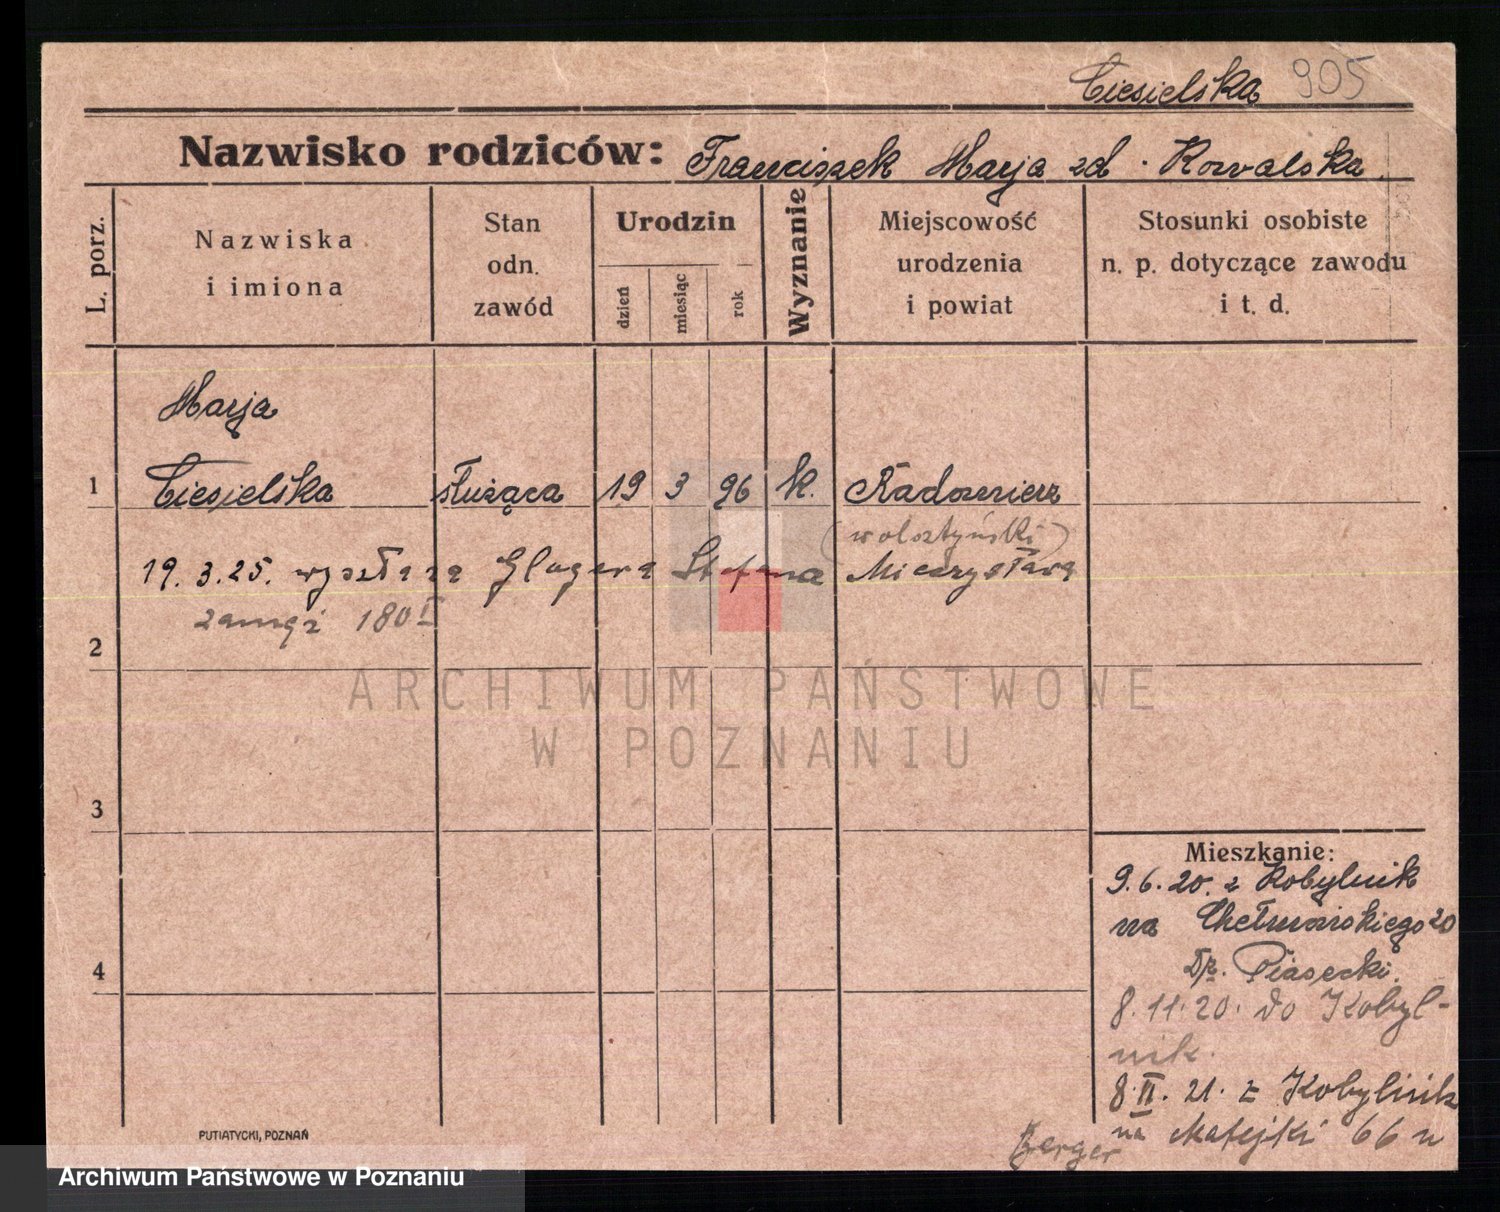 Ciesielska 905
Nazwisko rodziców: Franciszek Marja zd. Kowalska
L. porz.
Nazwiska
i imiona
Stan
odn.
zawód
Urodzin
dzień
miesiąc
rok
Wyznanie
Miejscowość
urodzenia
i powiat
Stosunki osobiste
n. p. dotyczące zawodu
i t. d.
Marja
1 Ciesielska służąca 19 3 96 k. Radomierz
(wolsztyński)
19.3.25. wyszła za Glugera Stefana Mieczysława
zamąż 180 I
2
ARCHIWUM PAŃSTWOWE
W POZNANIU
3
Mieszkanie:
9.6.20. z Kobylnik
na Chełmońskiego 20
Dr. Piasecki.
4
8.11.20. do Kobyl-
nik.
8.II.21. z Kobylnik
na Matejki 66 u
Berger
PUTIATYCKI, POZNAŃ
Archiwum Państwowe w Poznaniu